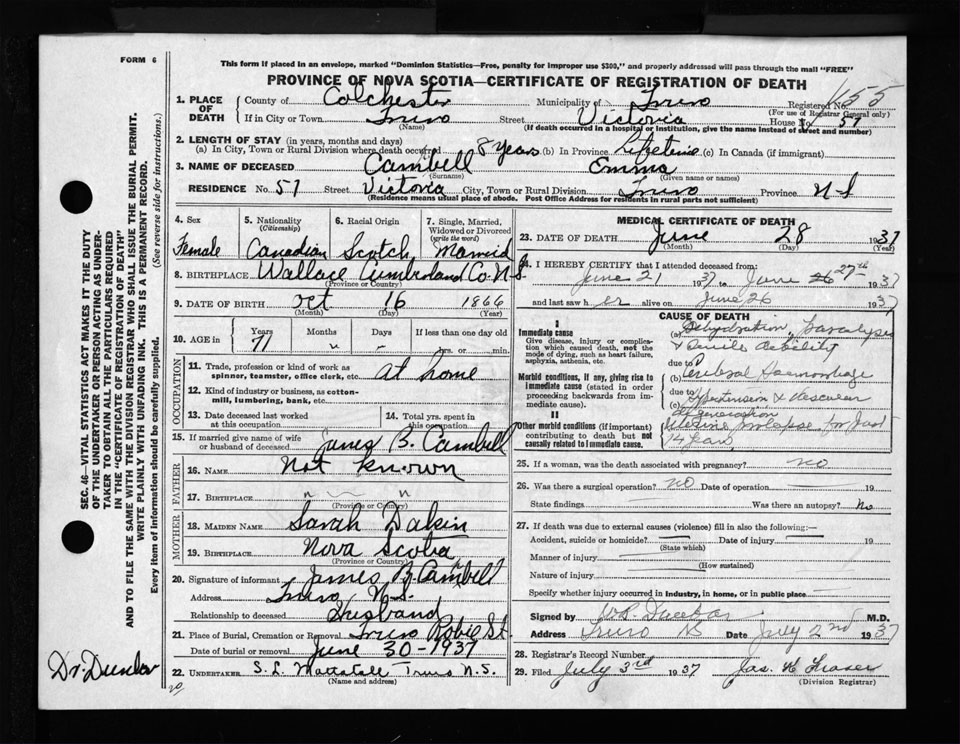 FORM 6
This form if placed in an envelope, marked "Dominion Statistics—Free, penalty for improper use $300," and properly addressed will pass through the mail "FREE"
PROVINCE OF NOVA SCOTIA—CERTIFICATE OF REGISTRATION OF DEATH
1. PLACE OF DEATH
County of Colchester Municipality of Truro Registered No. 1155
(For use of Registrar General only)
If in City or Town Truro Street Victoria House No 57
(Name) (If death occurred in a hospital or institution, give the name instead of street and number)
2. LENGTH OF STAY (in years, months and days)
(a) In City, Town or Rural Division where death occurred 8 years (b) In Province Lifetime (c) In Canada (if immigrant)
3. NAME OF DECEASED Cambell Emma
(Surname) (Given name or names)
RESIDENCE No. 57 Street Victoria City, Town or Rural Division Truro Province N-S
(Residence means usual place of abode. Post Office Address for residents in rural parts not sufficient)
4. Sex Female
5. Nationality (Citizenship) Canadian
6. Racial Origin Scotch
7. Single, Married, Widowed or Divorced (write the word) Married
8. BIRTHPLACE Wallace Cumberland Co. N.S.
(Province or Country)
9. DATE OF BIRTH Oct 16 1866
(Month) (Day) (Year)
10. AGE in Years 71 Months " Days " If less than one day old hrs. or min.
OCCUPATION
11. Trade, profession or kind of work as spinner, teamster, office clerk, etc. At home
12. Kind of industry or business, as cotton-mill, lumbering, bank, etc.
13. Date deceased last worked at this occupation
14. Total yrs. spent in this occupation
15. If married give name of wife or husband of deceased James B. Cambell
FATHER
16. NAME Not known
17. BIRTHPLACE " "
(Province or Country)
MOTHER
18. MAIDEN NAME Sarah Dakin
19. BIRTHPLACE Nova Scotia
(Province or Country)
20. Signature of informant James B. Cambell
Address Truro N.S.
Relationship to deceased Husband
21. Place of Burial, Cremation or Removal Truro Robie St.
Date of burial or removal June 30-1937
22. UNDERTAKER S.L. Mattatall Truro N.S.
(Name and address)
MEDICAL CERTIFICATE OF DEATH
23. DATE OF DEATH June 28 1937
(Month) (Day) (Year)
I HEREBY CERTIFY that I attended deceased from:
June 21 1937 to June 26 27th 1937
and last saw her alive on June 26 1937
CAUSE OF DEATH
I
Immediate cause
Give disease, injury or complication which caused death, not the mode of dying, such as heart failure, asphyxia, asthenia, etc.
(a) Dehydration, Paralysis
& Senile debility
due to
Morbid conditions, if any, giving rise to immediate cause (stated in order proceeding backwards from immediate cause).
(b) Cerebral Haemorrhage
due to
(c) Hypertension & Vascular
degeneration
II
Other morbid conditions (if important) contributing to death but not causally related to immediate cause.
Uterine prolapse for past
14 years
25. If a woman, was the death associated with pregnancy? no
26. Was there a surgical operation? no Date of operation 19
State findings Was there an autopsy? No
27. If death was due to external causes (violence) fill in also the following:—
Accident, suicide or homicide? Date 19
(State which)
Manner of injury
(How sustained)
Nature of injury
Specify whether injury occurred in industry, in home, or in public place
Signed by M.D.
Address Truro NS Date July 2nd 1937
28. Registrar's Record Number
29. Filed July 3rd 1937 Jas. H Fraser
(Division Registrar)
SEC. 46—VITAL STATISTICS ACT MAKES IT THE DUTY OF THE UNDERTAKER OR PERSON ACTING AS UNDERTAKER TO OBTAIN ALL THE PARTICULARS REQUIRED IN THE "CERTIFICATE OF REGISTRATION OF DEATH" AND TO FILE THE SAME WITH THE DIVISION REGISTRAR WHO SHALL ISSUE THE BURIAL PERMIT.
WRITE PLAINLY WITH UNFADING INK. THIS IS A PERMANENT RECORD.
Every item of information should be carefully supplied. (See reverse side for instructions.)
Dr. Dunbar